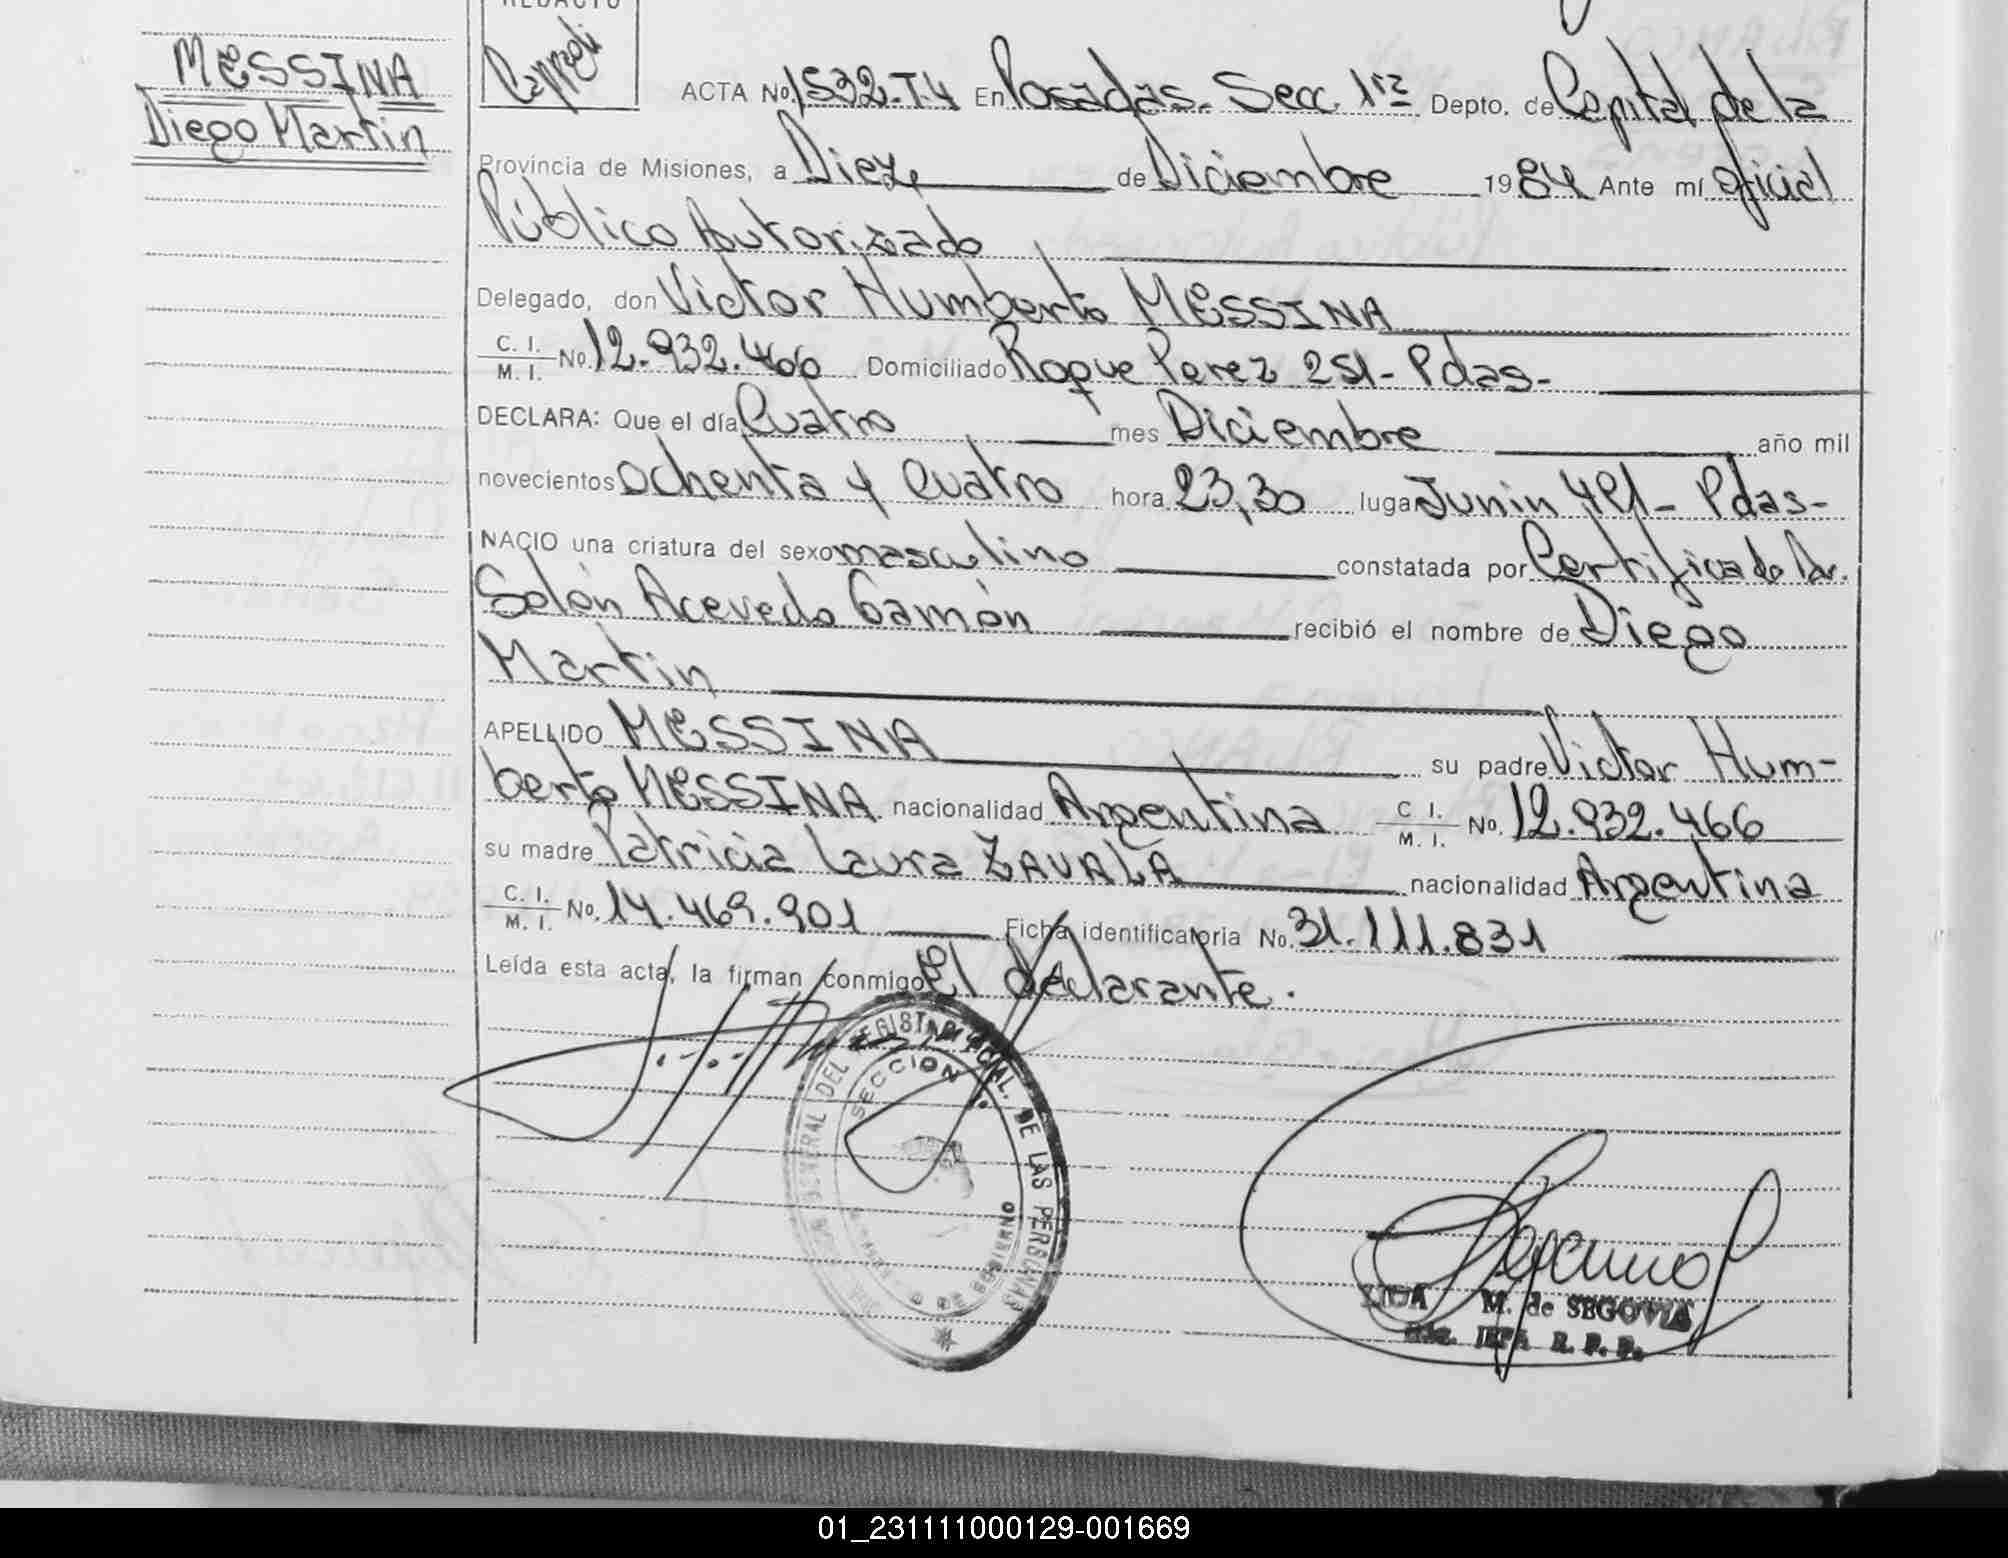 MESSINA
Diego Martin
REDACTO
ACTA No. 1532-T4 En Posadas. Secc. 1ra Depto. de Capital de la
Provincia de Misiones, a Diez de Diciembre 1984 Ante mí Oficial
Público Autorizado
Delegado, don Victor Humberto MESSINA
C. I. M. I. No. 12.932.466 Domiciliado Roque Perez 251- Pdas-
DECLARA: Que el día Cuatro mes Diciembre año mil
novecientos ochenta y cuatro hora 23,30 lugar Junin 491- Pdas-
NACIO una criatura del sexo masculino constatada por Certificado Dr.
Solón Acevedo Gamón recibió el nombre de Diego
Martin
APELLIDO MESSINA su padre Victor Hum-
berto MESSINA nacionalidad Argentina C I. M. I. No. 12.932.466
su madre Patricia Laura ZAVALA nacionalidad Argentina
C. I. M. I. No. 14.469.901 Ficha identificatoria No. 31.111.831
Leída esta acta, la firman conmigo El declarante.
GENERAL DEL REGISTRO DE LAS PERSONAS
SECCION
DE GOBIERNO
M. de SEGOVIA
01_231111000129-001669